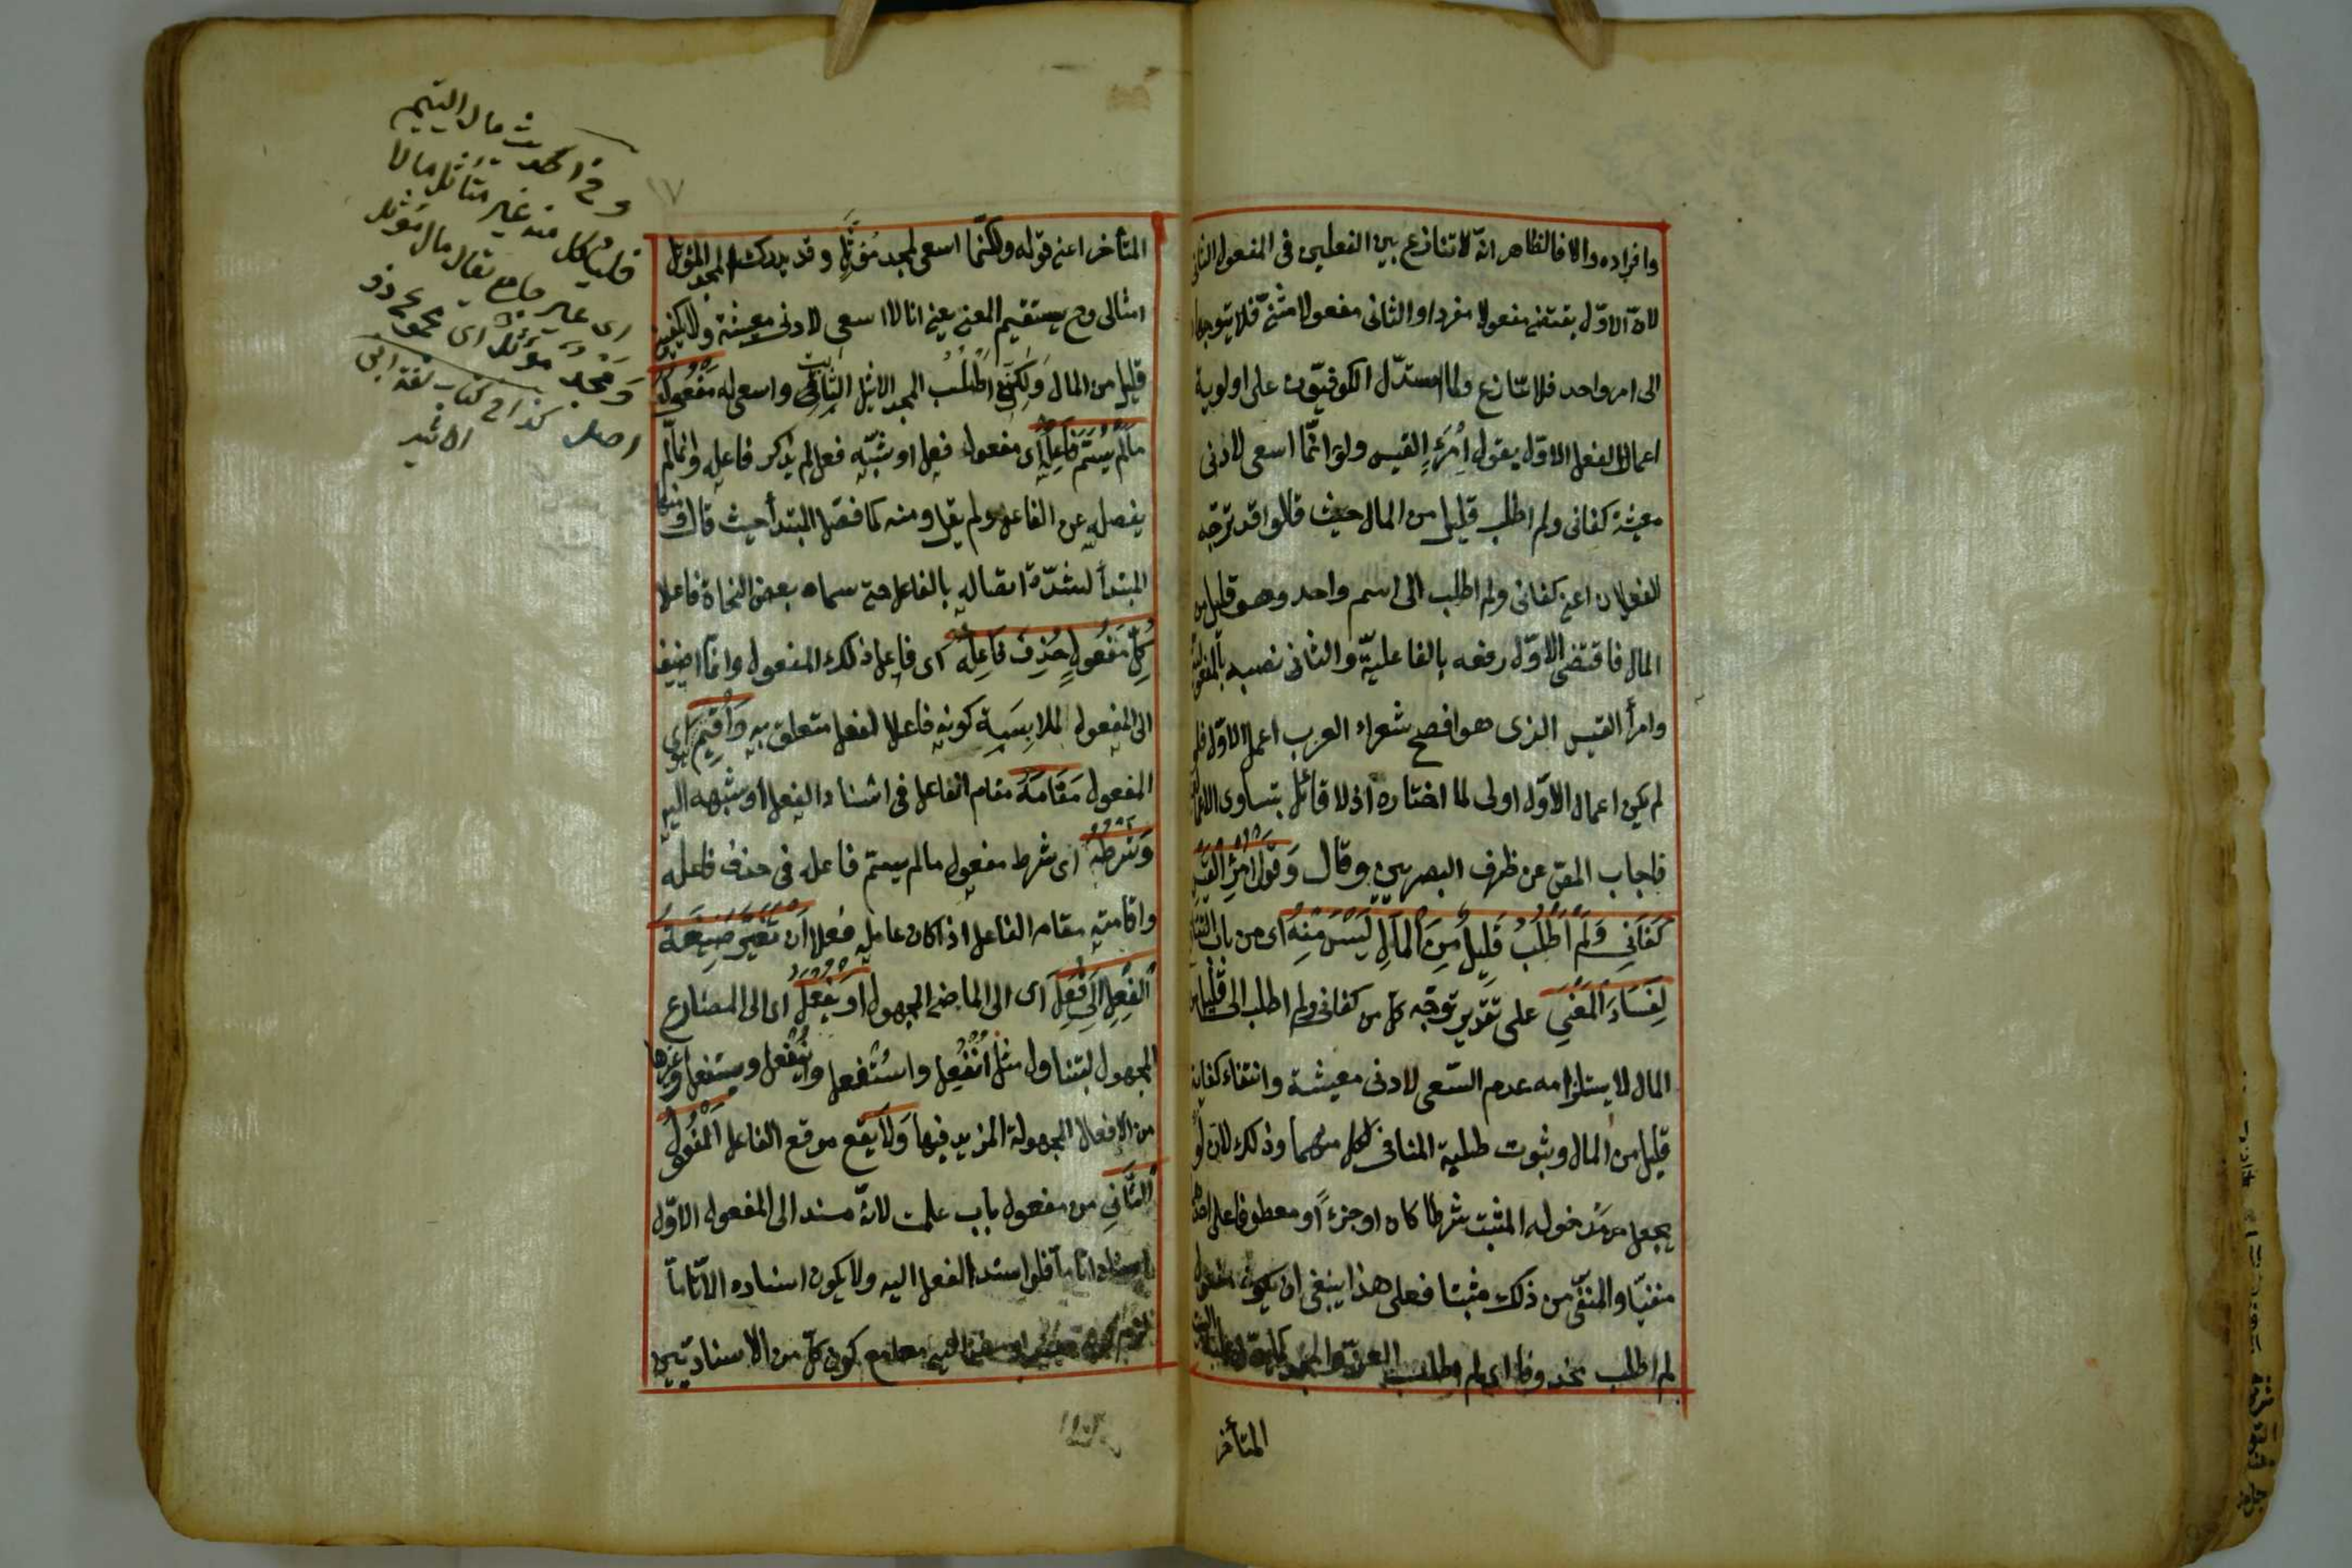 وافراده والا فالظاهر انّه لا تنازع بين الفعلين فى المفعول الثانى
لانّ الاوّل يقتضى مفعولا مفردا والثانى مفعولا مثنّى فلا يتوجها
الى امر واحد فلا تنازع ولما استدلّ الكوفيّون على اولوية
اعمال الفعل الاوّل بقول اِمْرَءِ القيس ولو انّما اسعى لادنى
معيشة كفانى ولم اطلب قليل من المال حيث قالوا قد توجّه
الفعلان اعنى كفانى ولم اطلب الى اسم واحد وهو قليل من
المال فاقتضى الاوّل رفعه بالفاعليّة والثانى نصبه بالمفعولية
وامرأ القيس الذى هو افصح شعراء العرب اعمل الاوّل فلو
لم يكن اعمال الاوّل اولى لما اختاره اذ لا قائل بتساوى الاعمالين
فاجاب المصّ عن طرف البصريين وقال وَقَوْلُ امْرِئِ القَيْسِ
كَفَانِي وَلَمْ اَطْلُبْ قَلِيلٌ مِنَ الْمَالِ لَيْسَ مِنْهُ اى من باب التنازع
لِفَسَادِ الْمَعْنَى على تقدير توجّه كلّ من كفانى ولم اطلب الى قليل من
المال لاستلزامه عدم السّعى لادنى معيشة وانتفاء كفاية
قليل من المال وثبوت طلبه المنافى لكل منهما وذلك لانّ لو
يجعل مدخوله المثبت شرطا كان او جزءً او معطوفا على احدهما
منفيّا والمنفىّ من ذلك مثبتا فعلى هذا ينبغى ان يكون مفعول
لم اطلب محذوفا اى لم اطلب العزّ والمجد كما يدلّ عليه البيت
المتأخر
١٧
المتأخر اعنى قوله ولكنّما اسعى لمجد مُؤثّلٍ وقد يدرك المجد المؤثل
امثالى وح يستقيم المعنى يعنى انا لا اسعى لادنى معيشة ولا يكفينى
قليل من المال وَلكِنّى اَطْلُبُ المجد الاثيل الثابت واسعى له مَفْعُولُ
مَا لَمْ يُسَمَّ فَاعِلُهُ اى مفعول فعل او شبه فعل لم يذكر فاعله وانما لم
يفصله عن الفاعل ولم يقل ومنه كما فصّل المبتدأ حيث قال ومنها
المبتدأ لشدّة اتصاله بالفاعل حتى سماه بعض النحاة فاعلا
كُلُّ مَفْعُولٍ حُذِفَ فَاعِلُهُ اى فاعل ذلك المفعول وانّما اضيف
الى المفعول لملابسة كونه فاعلا لفعل متعلق به وَاُقِيمَ هو اى
المفعول مَقَامَهُ مقام الفاعل فى اسناد الفعل او شبهه اليه
وَشَرْطُهُ اى شرط مفعول ما لم يسمّ فاعله فى حذف فاعله
واقامته مقام الفاعل اذا كان عامله فعلا اَنْ تُغَيَّرَ صِيغَةُ
الْفِعْلِ اِلَى فُعِلَ اى الى الماضى المجهول اَوْ يُفْعَلُ اى الى المضارع
المجهول ليتناول مثل اُنْفُعِلَ واسْتُفْعِل ويُنْفَعل ويستفعل وغيرها
من الافعال المجهولة المزيد فيها وَلَا يَقَعُ موقع الفاعل الْمَفْعُولُ
الثَّانِي من مفعولى باب علمت لانّه مسند الى المفعول الاوّل
اسنادا تامّا فلو اسند الفعل اليه ولا يكون اسناده الّا تامّا
لزم كونه مسندا ومسندا اليه معا مع كون كلّ من الاسنادين
وفى الحديث مال اليتيم
فليأكل منه غير متأثل مالا
اى غير جامع يقال مال مؤثل
ومجد مؤثل اى مجموع ذو
اصل كذا فى كتاب لغة ابن
الاثير